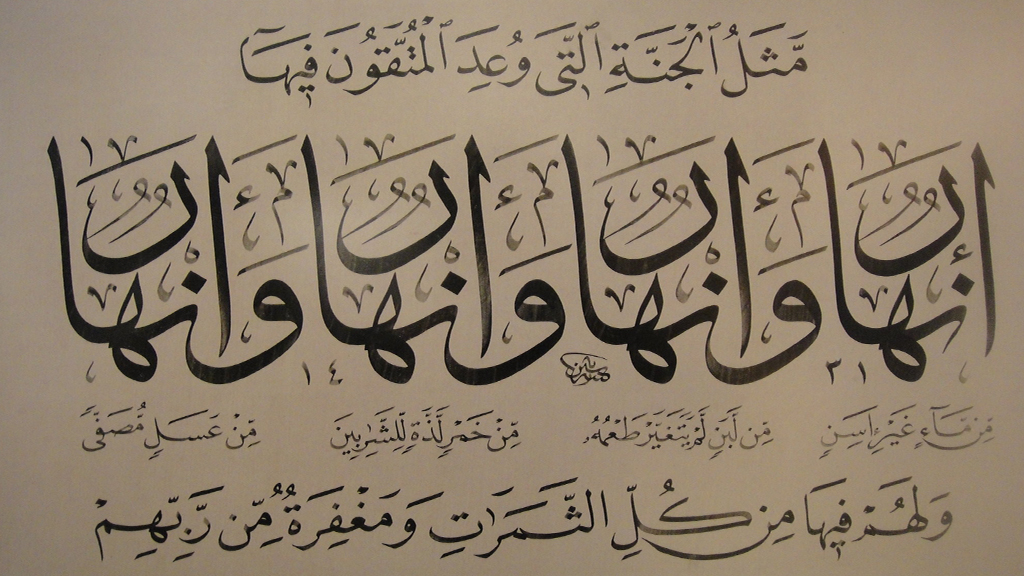 مَّثَلُ ٱلْجَنَّةِ ٱلَّتِى وُعِدَ ٱلْمُتَّقُونَ فِيهَآ
أَنْهَارٌ وَأَنْهَارٌ وَأَنْهَارٌ وَأَنْهَارٌ
٣١ ١٤
مِّن مَّآءٍ غَيْرِ ءَاسِنٍ مِّن لَّبَنٍ لَّمْ يَتَغَيَّرْ طَعْمُهُۥ مِّنْ خَمْرٍ لَّذَّةٍ لِّلشَّٰرِبِينَ مِّنْ عَسَلٍ مُّصَفًّى
وَلَهُمْ فِيهَا مِن كُلِّ الثَّمَرَٰتِ وَمَغْفِرَةٌ مِّن رَّبِّهِمْ